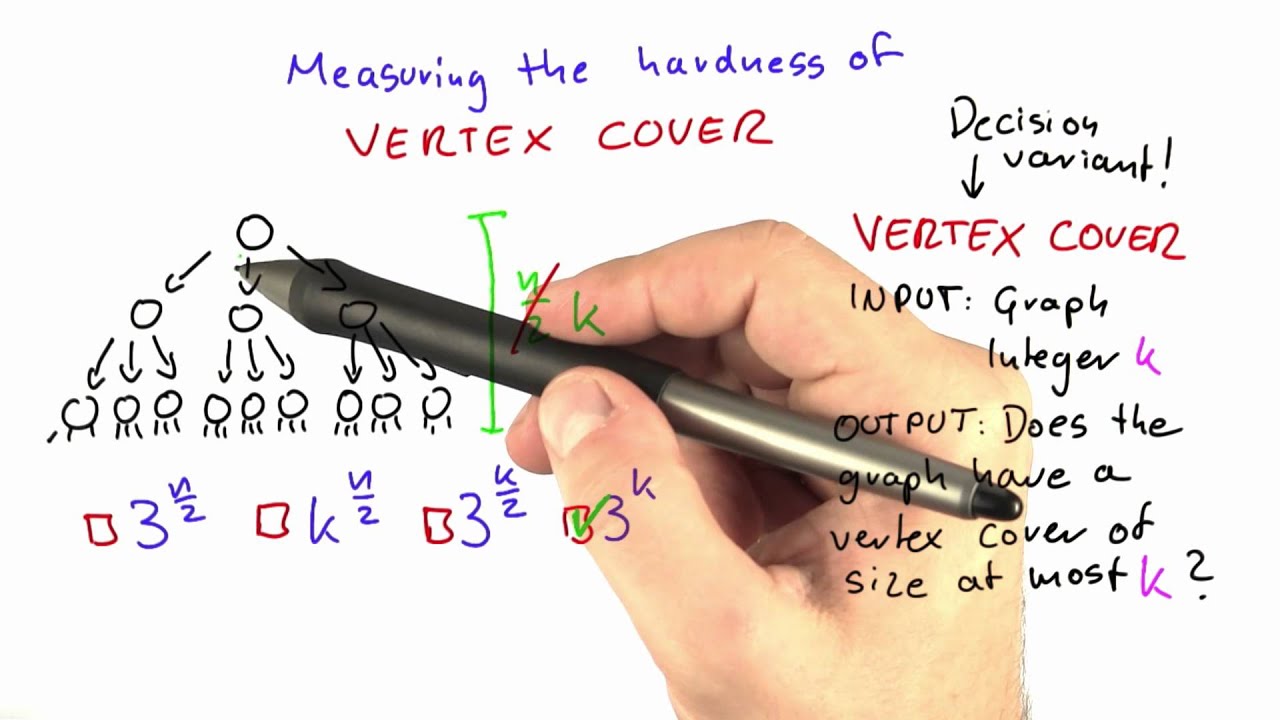 Measuring the hardness of
VERTEX COVER
Decision
variant!
VERTEX COVER
INPUT: Graph
Integer k
OUTPUT: Does the
graph have a
vertex cover of
size at most k?
n/2 k
3^(n/2) k^(n/2) 3^(k/2) 3^k